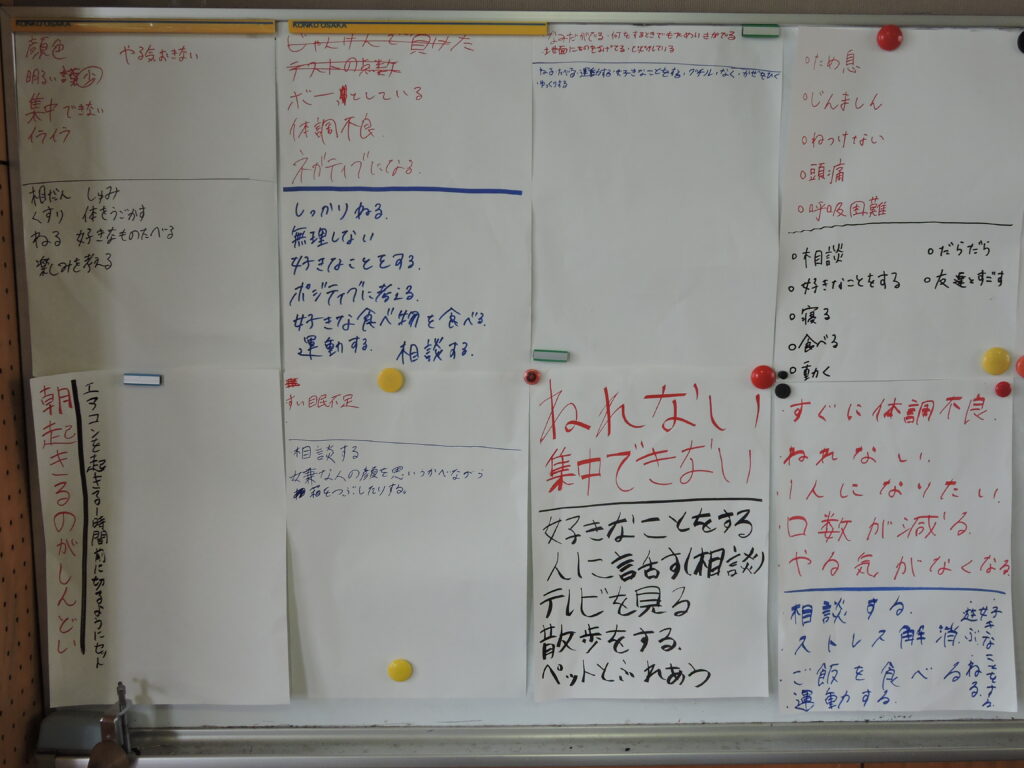 KONKU OSAKA
顔色　やる気おきない
明るい談少
集中できない
イライラ
相だん　しゅみ
くすり　体をうごかす
ねる　好きなものたべる
楽しみを考える
KONKU OSAKA
じゃんけんで負けた
テストの点数
ボーっとしている
体調不良
ネガティブになる
しっかりねる。
無理しない
好きなことをする。
ポジティブに考える。
好きな食べ物を食べる。
運動する。　相談する。
なみだがでる・何をするときでもためいきがでる
ねる・たべる・運動する・好きなことをする・なく・かぜをひく
ゆっくりする
○ため息
○じんましん
○ねつけない
○頭痛
○呼吸困難
○相談　○だらだら
○好きなことをする　○友達とすごす
○寝る
○食べる
○動く
朝起きるのがしんどい
エアコンを起きる1時間前に切るようにセット
すい眠不足
相談する
嫌な人の顔を思いうかべながら
箱をつぶしたりする。
ねれない
集中できない
好きなことをする
人に話す(相談)
テレビを見る
散歩をする。
ペットとふれあう
・すぐに体調不良。
・ねれない。
・1人になりたい。
・口数が減る。
・やる気がなくなる。
・相談する。
・ストレス解消
・ご飯を食べる
・運動する。
好きなことをする。
遊ぶ。ねる。